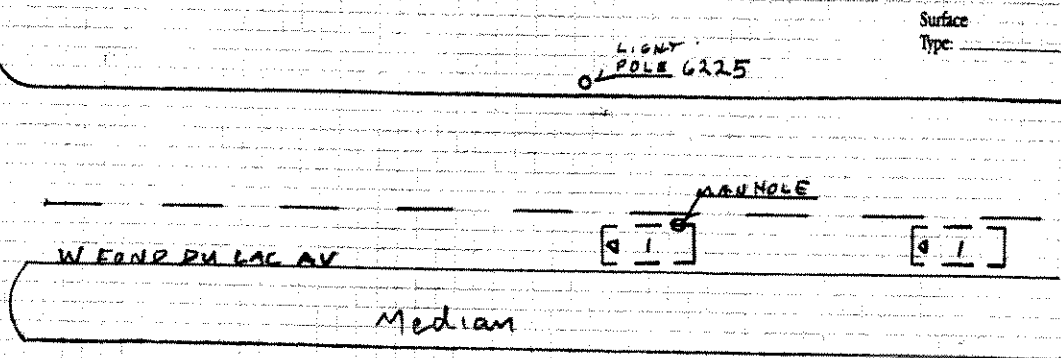 Surface
Type:
LIGHT
POLE 6225
MANHOLE
1
1
W FOND DU LAC AV
Median